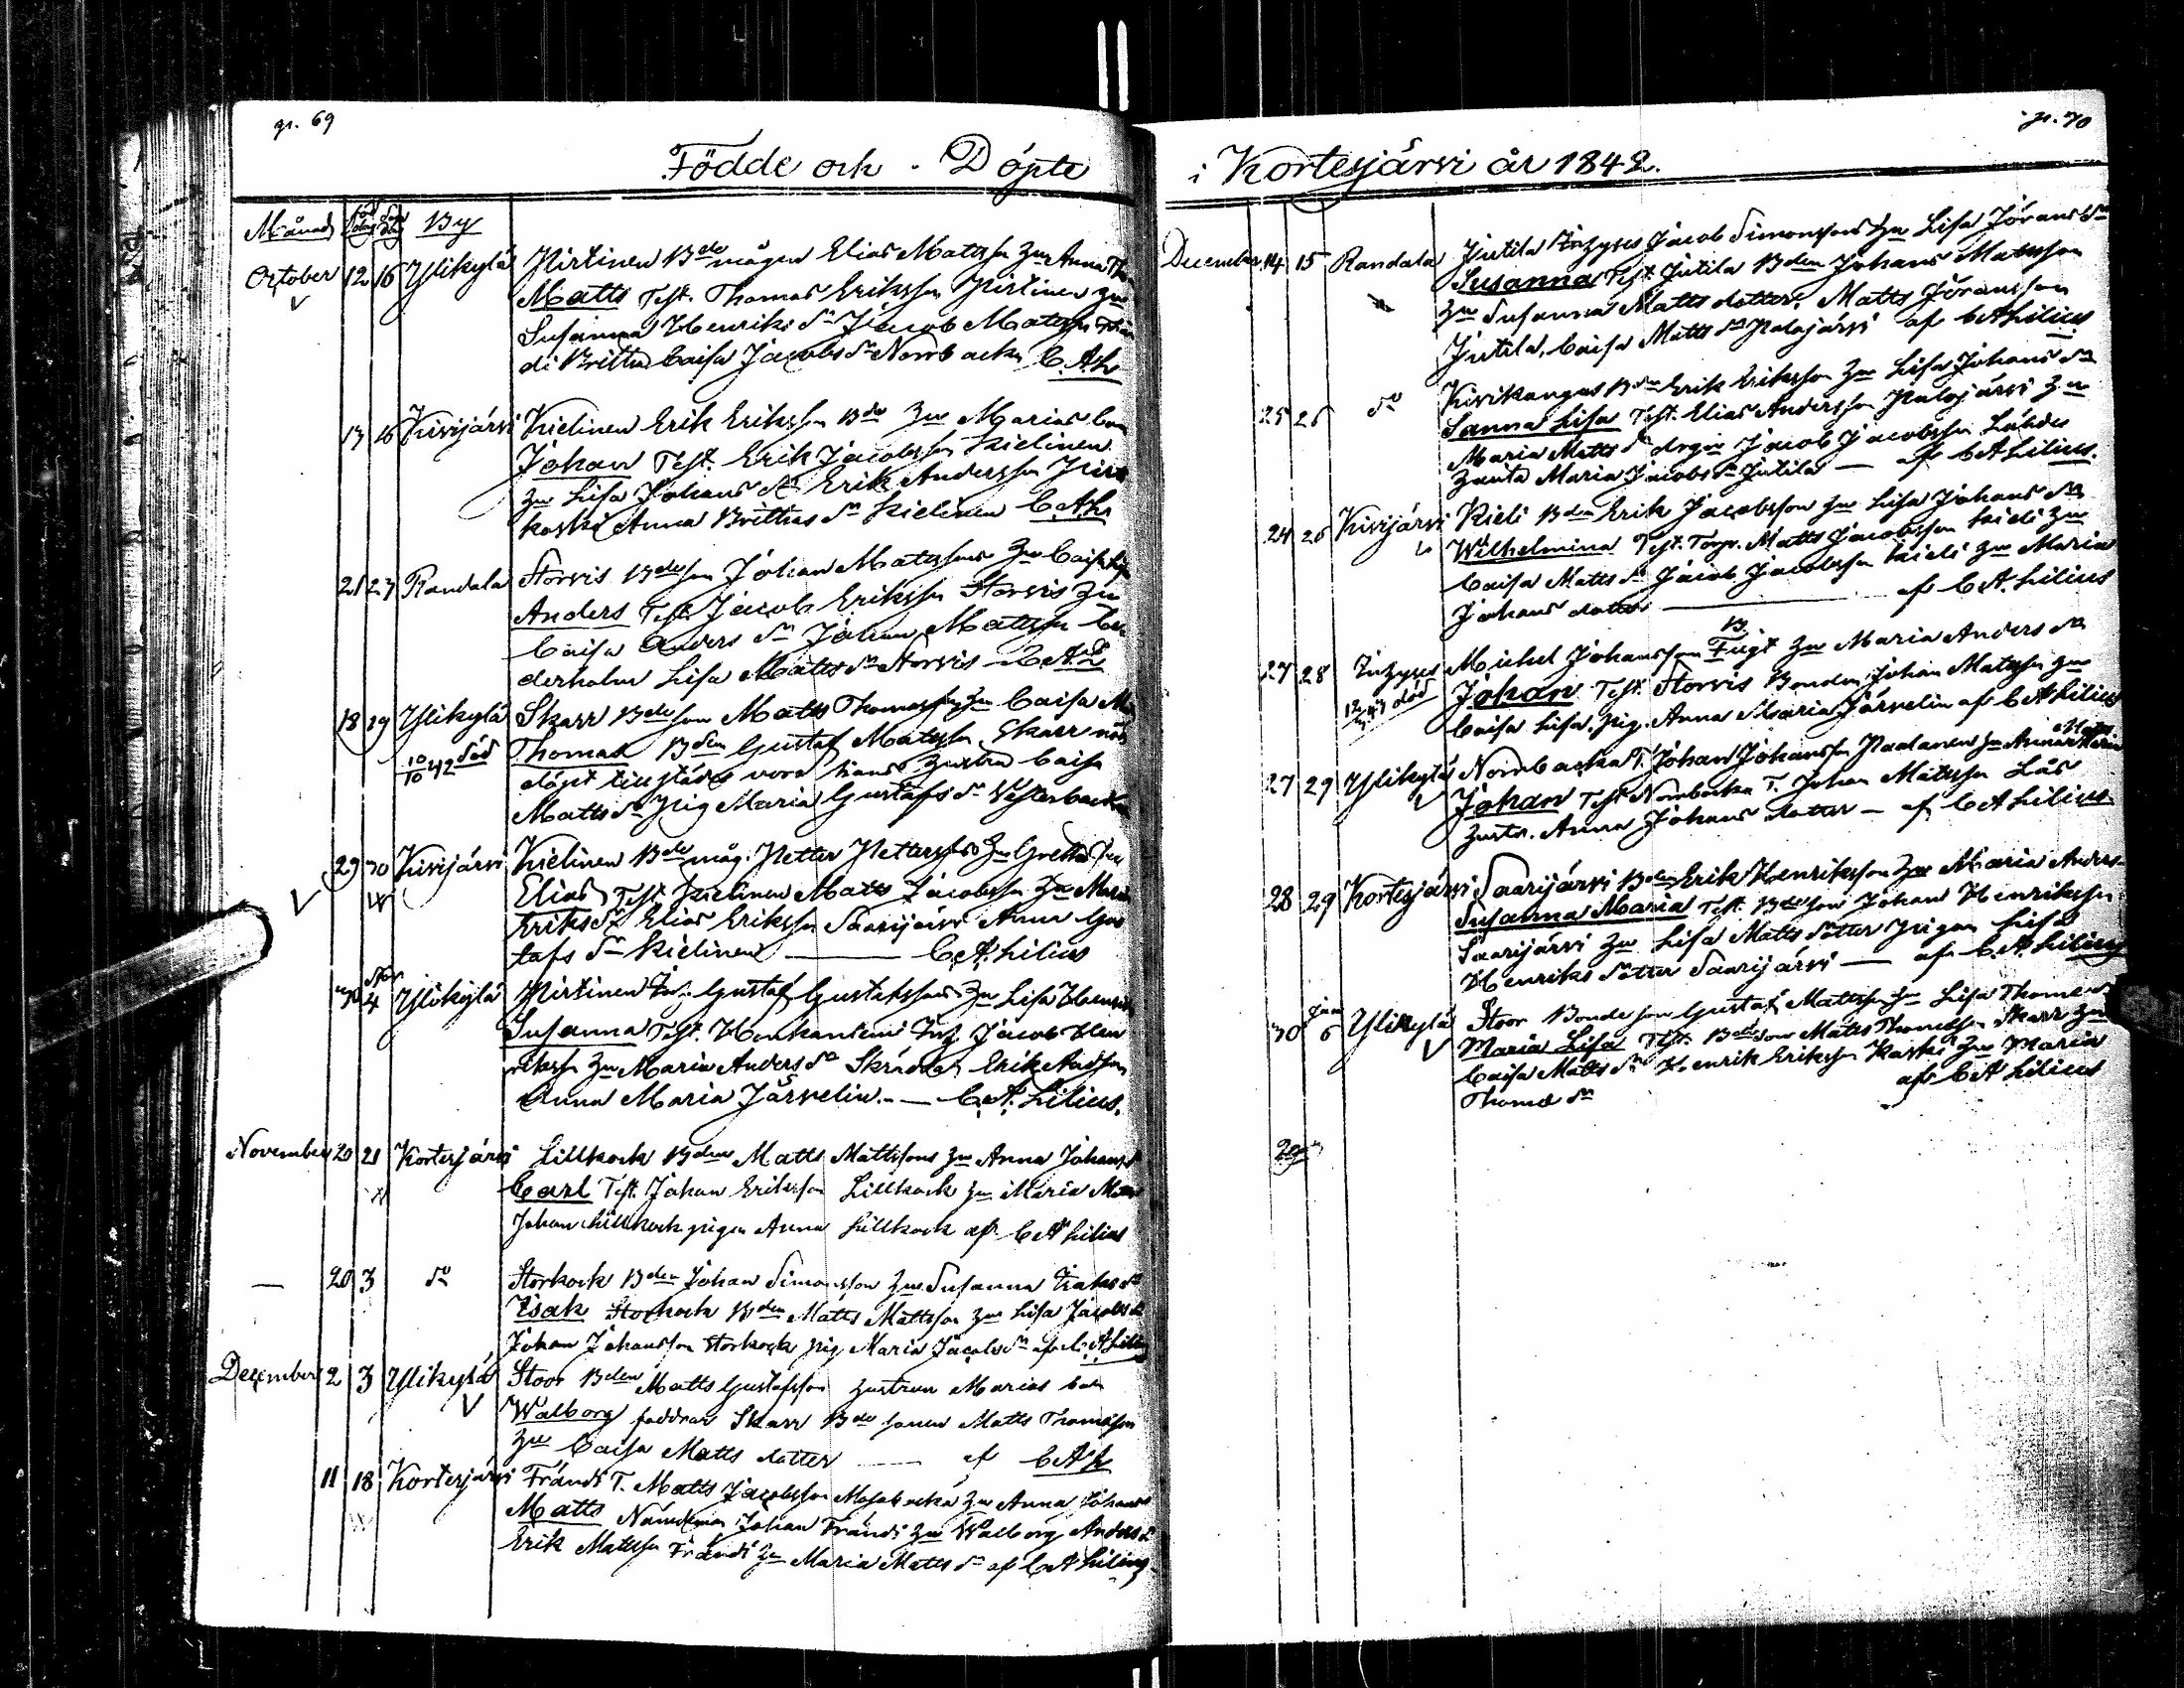 gr. 69
Födde och Döpte
Månad By
October 12 16 Ylikylä Pirtinen Bde mågen Elias Mattss Hu Anna
Matts Test. Thomas Eriksson Pirtinen Hu
Susanna Henriks dr Jacob Matss
Caisa Jacobs dr Norrbacka C. A. L.
13 16 Kivijärvi Kielinen Erik Eriksson Bde Hu Marias
Johan Test. Erik Jacobsson Kielinen
Hu Lisa Johans dr Erik Andersson
koski Anna Brittas dr Kielinen C. A. L.
21 23 Randala Storvis Bdeson Johan Matssons Hu Caisa
Anders Test. Jacob Eriksson Storvis Hu
Caisa Anders dr Johan Matsson
derholm Lisa Matts dr Storvis
18 19 Ylikylä Skarr Bdeson Matts Thomasson Hu Caisa
10/10 42 död Thomas Bden Gustaf Matsson Skarr
döpt tillstädes voro hans hustru Caisa
Matts dr Pig Maria Gustafs dr Westerbacka
29 30 Kivijärvi Kielinen Bde måg. Petter Petterss Hu Gretha
Elias Test. Kielinen Matts Jacobsson Hu Maria
Eriks dr Elias Eriksson Saarijärvi Anna Gus
tafs dr Kielinen — C. A. Lilius
30 4 Ylikylä Pirtinen Gustaf Gustafssons Hu Lisa Henriks
Susanna Test. Honkaniemi Jacob Hen
riksson Hu Maria Anders dr Skräddar Erik
Anna Maria Järvelin. — C. A. Lilius.
November 20 21 Kortesjärvi Lillkock Bden Matts Mattssons Hu Anna Johans
Carl Test. Johan Eriksson Lillkock Hu Maria Matts
Johan Lillkock pigan Anna Lillkock af C A Lilius
— 20 3 do Storkock Bden Johan Simonsson Hu Susanna Isaks dr
Isak Storkock Bden Matts Mattsson Hu Lisa Jacobs dr
Johan Johansson Storkock pig Maria Jacobs dr af C. A Lilius
December 2 3 Ylikylä Stoor Bden Matts Gustafsson hustrun Marias barn
Walborg faddrar Skarr Bde sonen Matts Thomasson
Hu Caisa Matts dotter — af C A L
11 18 Kortesjärvi Frändi T. Matts Jacobsson Hu Anna Johans
Matts Nämdeman Johan Frändi Hu Walborg Anders dr
Erik Matsson Frändi Hu Maria Matts dr af C A Lilius
gr. 70
i Kortesjärvi år 1842.
December 14 15 Randala Jutila Inhyses Jacob Simonsons Hu Lisa Jörans dr
Susanna Test. Jutila Bden Johans Matsson
Hu Susanna Matts dotter, Matts Jöransson
Jutila, Caisa Matts dr Palojärvi af C A Lilius
25 26 do Kivikangas Bden Erik Eriksson Hu Lisa Johans dr
Sanna Lisa Test. Elias Andersson Palojärvi Hu
Maria Matts dr drgn Jacob Jacobsson
Maria Jacobs dr Jutila — af C A Lilius.
24 26 Kivijärvi Kieli Bden Erik Jacobsson Hu Lisa Johans dr
Wilhelmina Test. Torp. Matts Jacobsson Kieli Hu
Caisa Matts dr Jacob Jacobsson Kieli Hu Maria
Johans dotter — af C A. Lilius
27 28 Inhyses Michel Johansson Hu Maria Anders dr
död Johan Test. Storvis Bonden Johan Matsson Hu
Caisa Lisa. pig. Anna Maria Järvelin af C A Lilius
27 29 Ylikylä Norrbacka T. Johan Johansson Paalanen Hu Anna Maria
Johan Test. Norrbacka T. Johan Mattsson
hustr. Anna Johans dotter — af C A Lilius
28 29 Kortesjärvi Saarijärvi Bden Erik Henriksson Hu Maria Anders
Susanna Maria Test. Bdeson Johan Henriksson
Saarijärvi Hu Lisa Matts dotter pigan Lisa
Henriks dotter Saarijärvi — af C. A. Lilius
30 Jan 6 Ylikylä Stoor Bondeson Gustaf Mattsson Hu Lisa Thomæ dr
Maria Lisa Test. Bdeson Matts Thomasson Skarr Hu
Caisa Matts dr Henrik Eriksson Kaski Hu Maria
Thomæ dr af C A Lilius